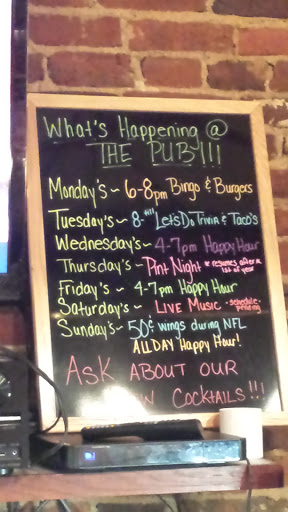 What's Happening @
THE PUB!!!
Monday's ~ 6-8pm Bingo & Burgers
Tuesday's ~ 8-'till Let'sDo Trivia & Taco's
Wednesday's ~ 4-7pm Happy Hour
Thursday's ~ Pint Night * resumes after
1st of year
Friday's ~ 4-7pm Happy Hour
Saturday's ~ LIVE Music - schedule-
pending
Sunday's ~ 50¢ wings during NFL
ALL DAY Happy Hour!
ASK ABOUT OUR
COCKTAILS!!!